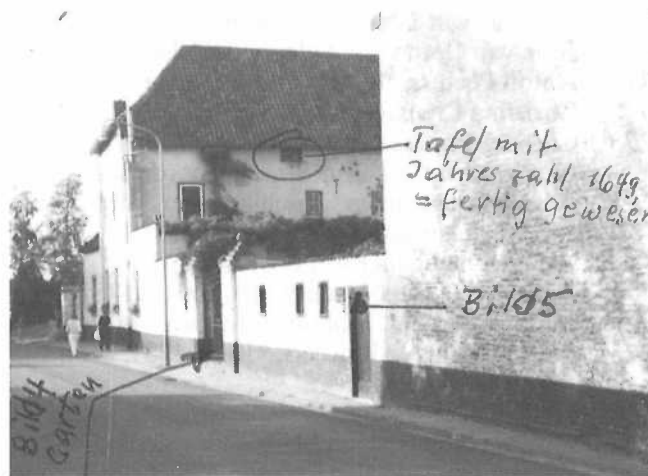 Tafel mit
Jahreszahl 1649
= fertig gewesen
Bild 5
Bild 4
Garten